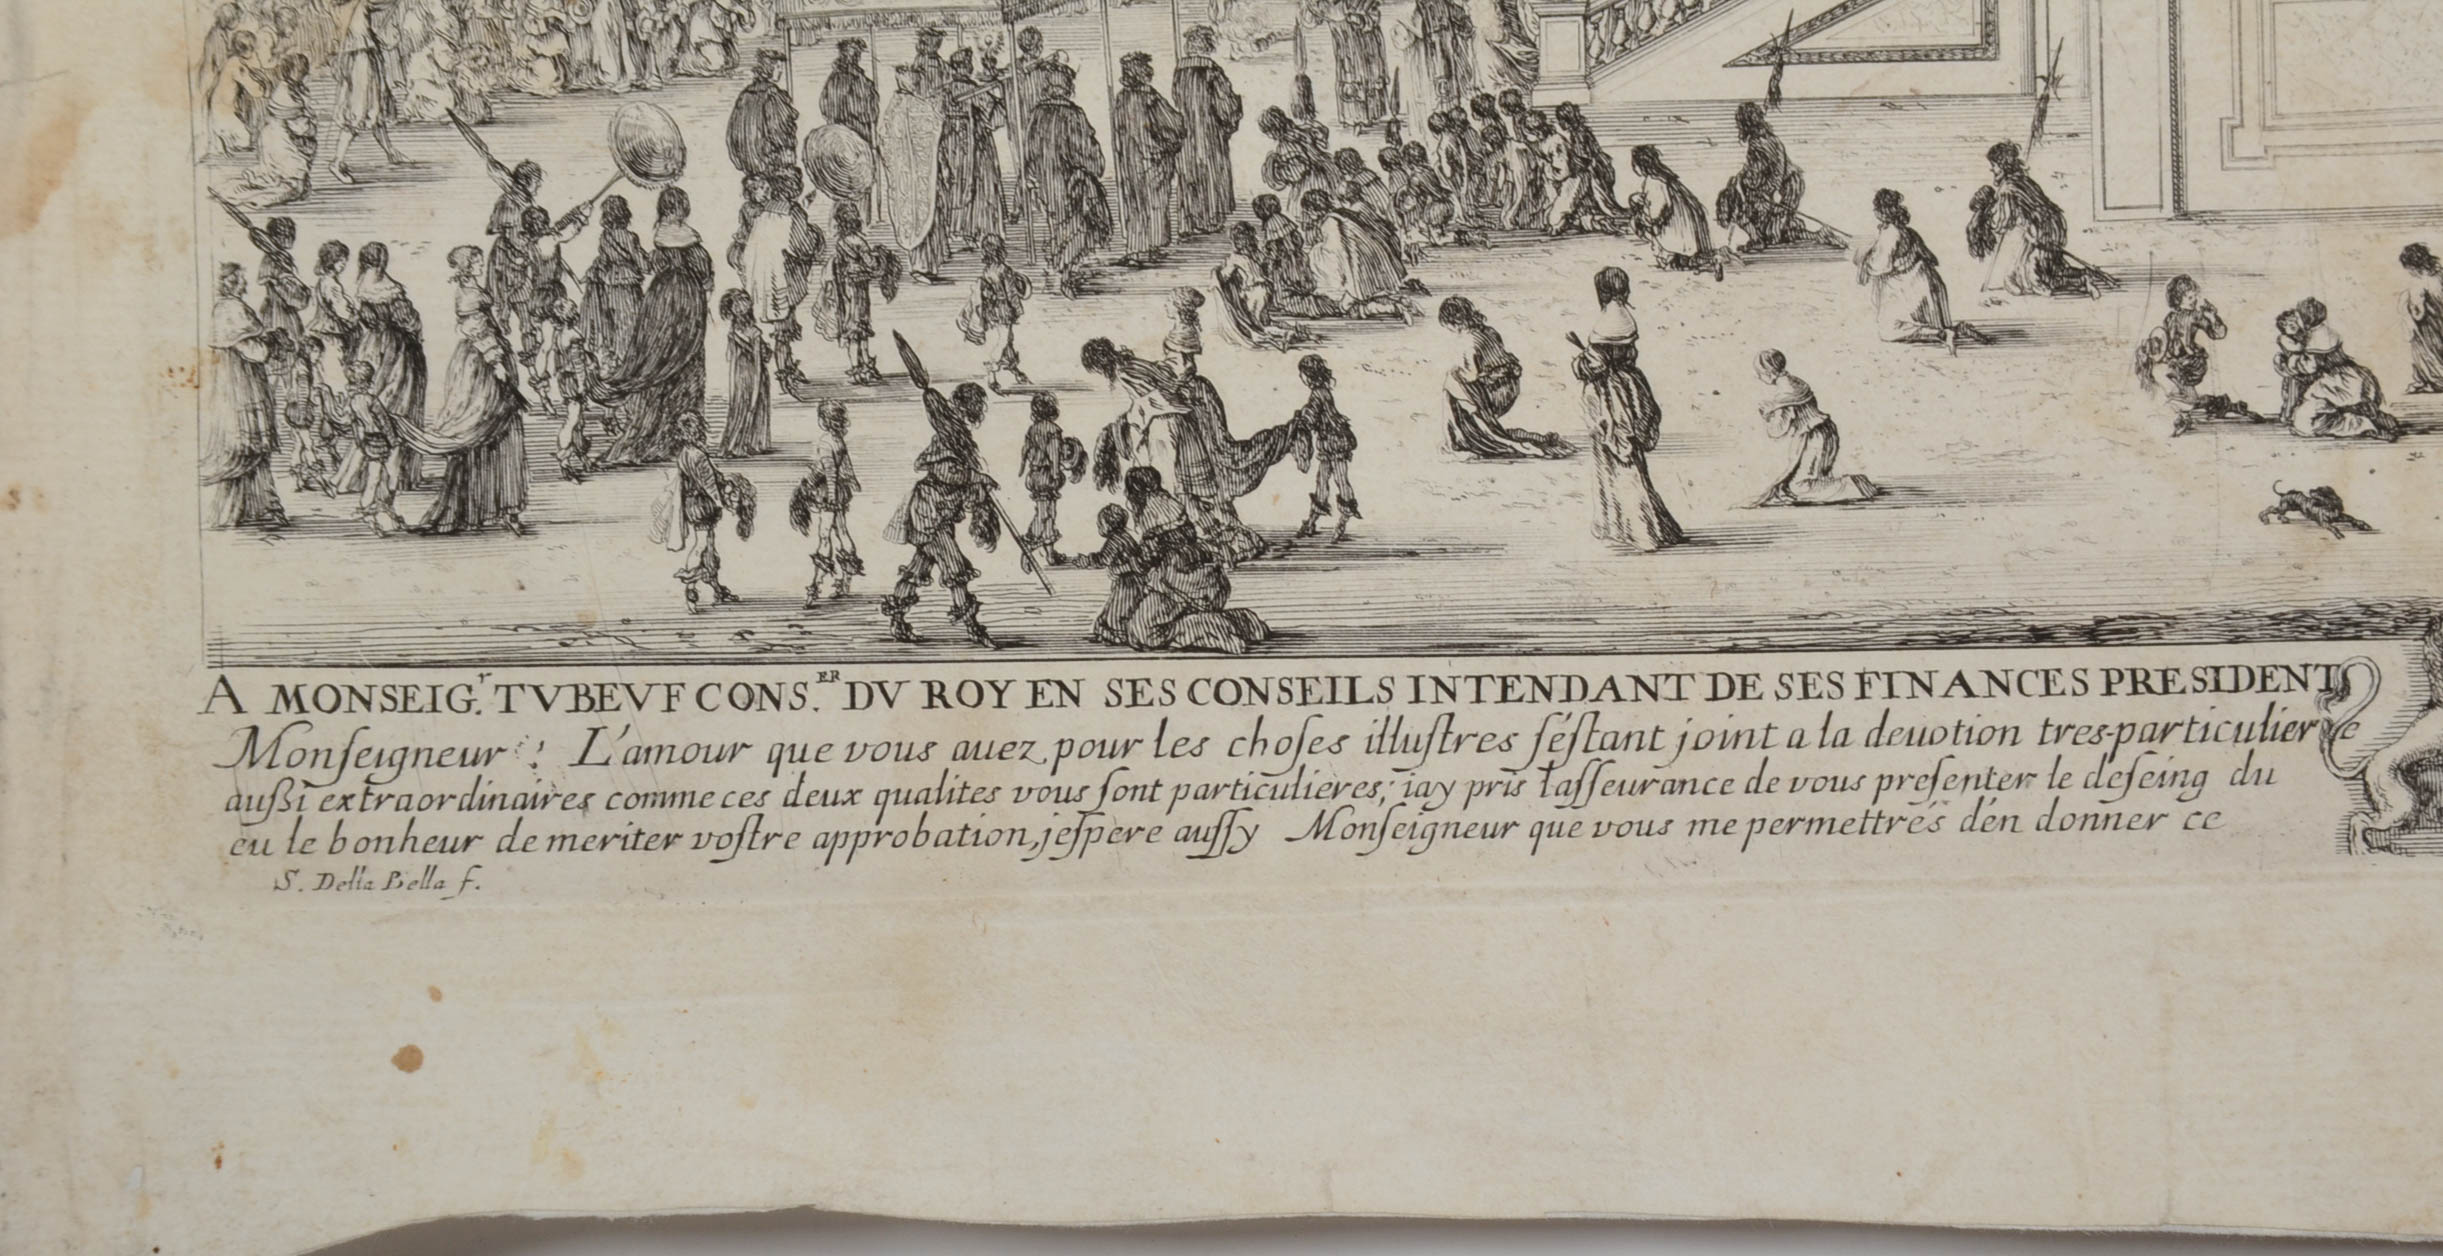 A MONSEIG.r TVBEVF CONS.ER DV ROY EN SES CONSEILS INTENDANT DE SES FINANCES PRESIDENT
Monſeigneur ! L'amour que vous auez pour les choſes illuſtres ſéſtant joint a la deuotion tres-particuliere
außi extraordinaires comme ces deux qualites vous ſont particulieres; iay pris laſſeurance de vous preſenter le deſeing du
eu le bonheur de meriter voſtre approbation, jeſpere auſſy Monſeigneur que vous me permettrés dén donner ce
S. Della Bella f.